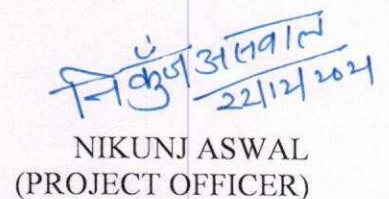 निकुँज असवाल
22/12/2021
NIKUNJ ASWAL
(PROJECT OFFICER)